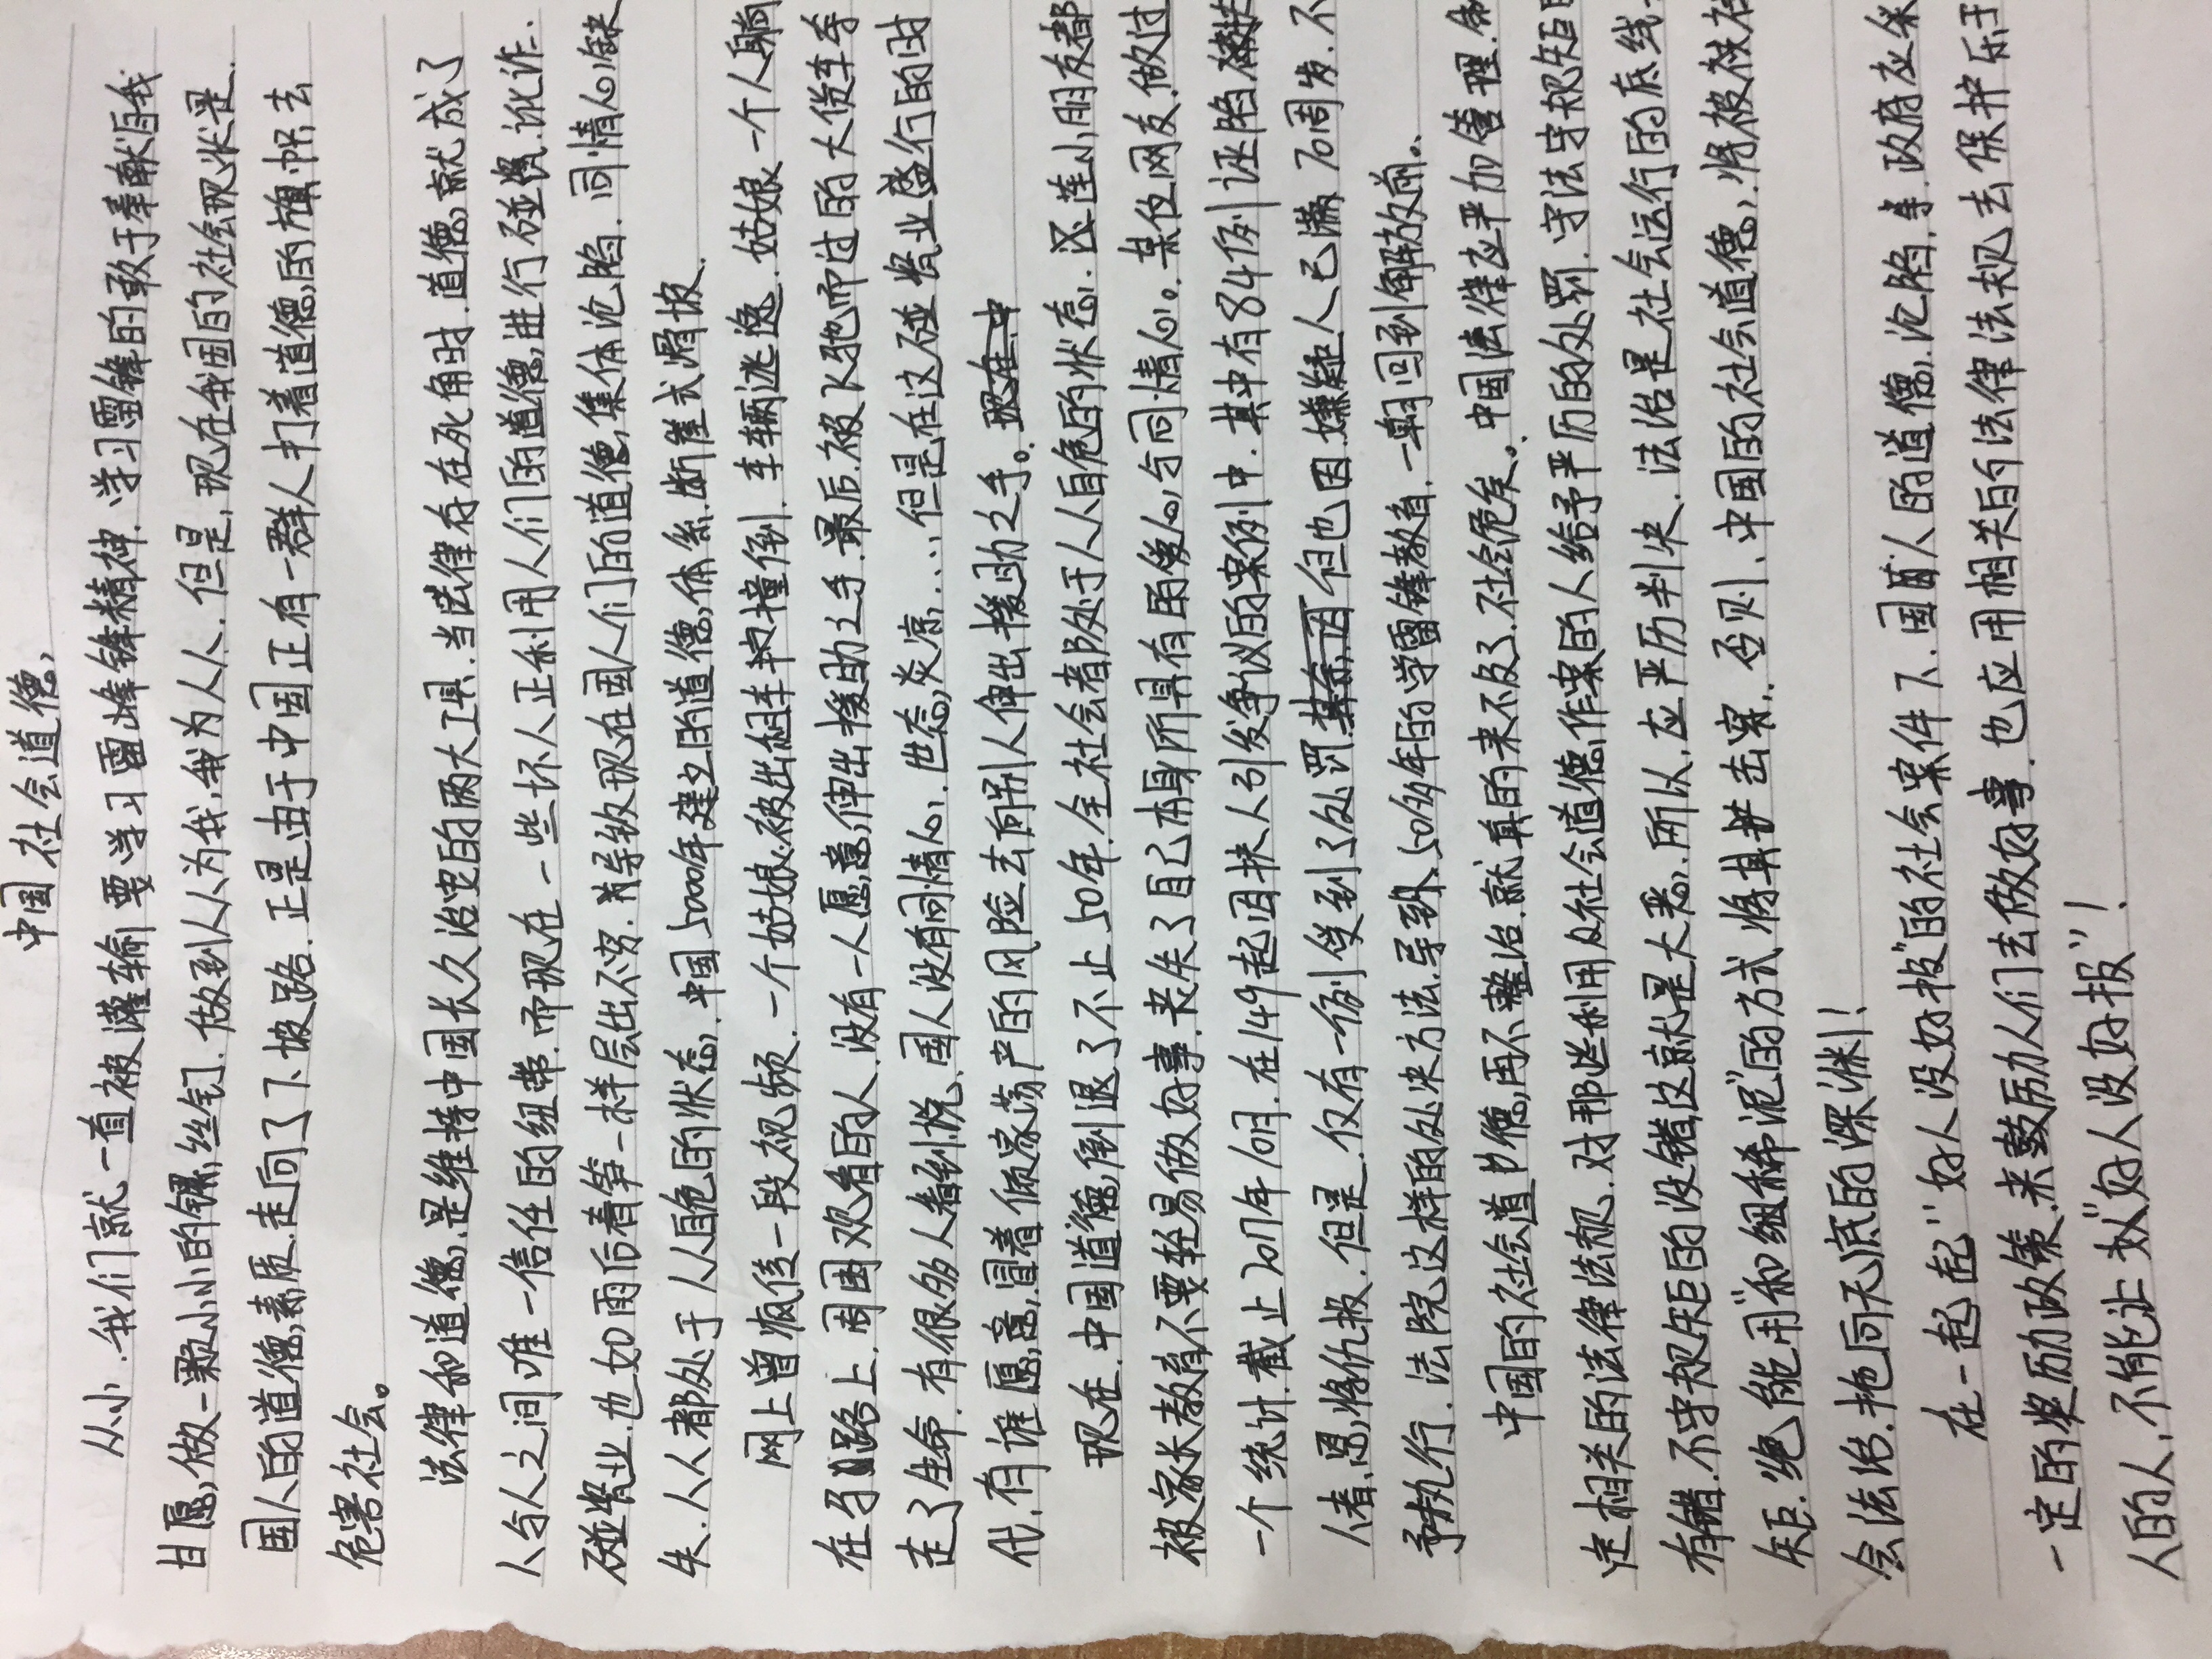 中国社会道德
从小.我们就一直被灌输要学习雷峰锋精神.学习雷锋的敢于奉献自我
甘愿做一颗小小的镙丝钉.做到人人为我,我为人人.但是,现在我国的社会现状是.
国人的道德,素质.走向了下坡路.正是由于中国正有一群人打着道德的旗帜去
危害社会。
法律和道德,是维持中国长久治安的两大工具.当法律存在死角时.道德就成了
人与人之间唯一信任的纽带.而现在一些坏人正利用人们的道德进行碰瓷.讹诈.
碰瓷业.也如雨后春笋一样层出不穷.导致现在国人们的道德集体沦陷.同情心缺
失.人人都处于人人自危的状态,中国5000年建立的道德,体系.断崖式滑坡.
网上曾疯传一段视频.一个姑娘被出租车撞倒.车辆逃逸.姑娘一个人躺
在马路上.周围观看的人.没有一人愿意伸出援助之手.最后被飞驰而过的大货车夺
走了生命.有很多人看到说,国人没有同情心.世态炎凉...但是在这碰瓷业盛行的时
代.有谁愿意,冒着倾家荡产的风险去向别人伸出援助之手。现在中
现在.中国道德倒退了不止50年.全社会都处于人人自危的状态.还连小朋友都
被家长教育不要轻易做好事.丧失了自己本身所具有的爱心与同情心。某位网友.做过
一个统计.截止2017年10月.在149起因扶人引发争议的案例中.其中有84例诬陷搀扶
人者.恩将仇报.但是.仅有一例受到了处罚.但也因嫌疑人已满70周岁.不
予执行.法院这样的处决方法.导致50多年的学雷锋教育.一朝回到解放前..
中国的社会道德,再不整治.就真的来不及了.社会危矣.中国法律应严加管理.制
定相关的法律法规.对那些利用社会道德作案的人给予严厉的处罚.守法守规矩
有错.不守规矩的没错这就是大恶.所以.应严厉判决.法治是社会运行的底线.
矩.绝不能用"和细稀泥"的方式将其击穿.否则.中国的社会道德,将被被社
会法治.拖向无底的深渊!
在一起起"好人没好报"的社会案件下.国人的道德,沦陷.政府应采
一定的奖励政策.来鼓励人们去做好事.也应用相关的法律法规去保护乐于
人的人.不能让"好人没好报"!